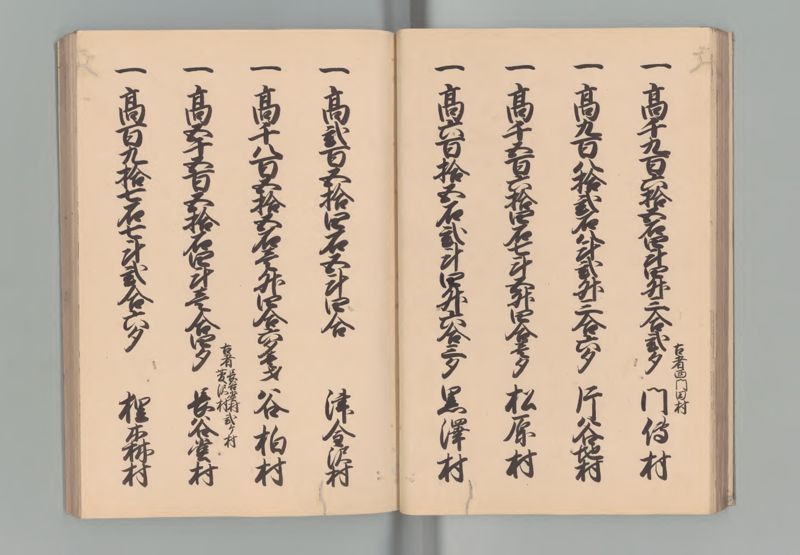 一 高千九百六拾五石四斗四升二合弐夕 門傳村
古者四門田村
一 高九百八拾弐石八斗弐升二合六夕 片谷地村
一 高千五百六拾四石七斗五升四合壱夕 松原村
一 高六百拾五石弐斗四升六合三夕 黒澤村
一 高弐百五拾四石五斗四合 津金沢村
一 高千八百五拾五石壱升四合六夕壱才 谷柏村
一 高五千五百五拾石四斗壱合四夕 長谷堂村
古者長谷堂村菅沢村弐ヶ村
一 高百九拾七石七斗弐合六夕 椹木林村